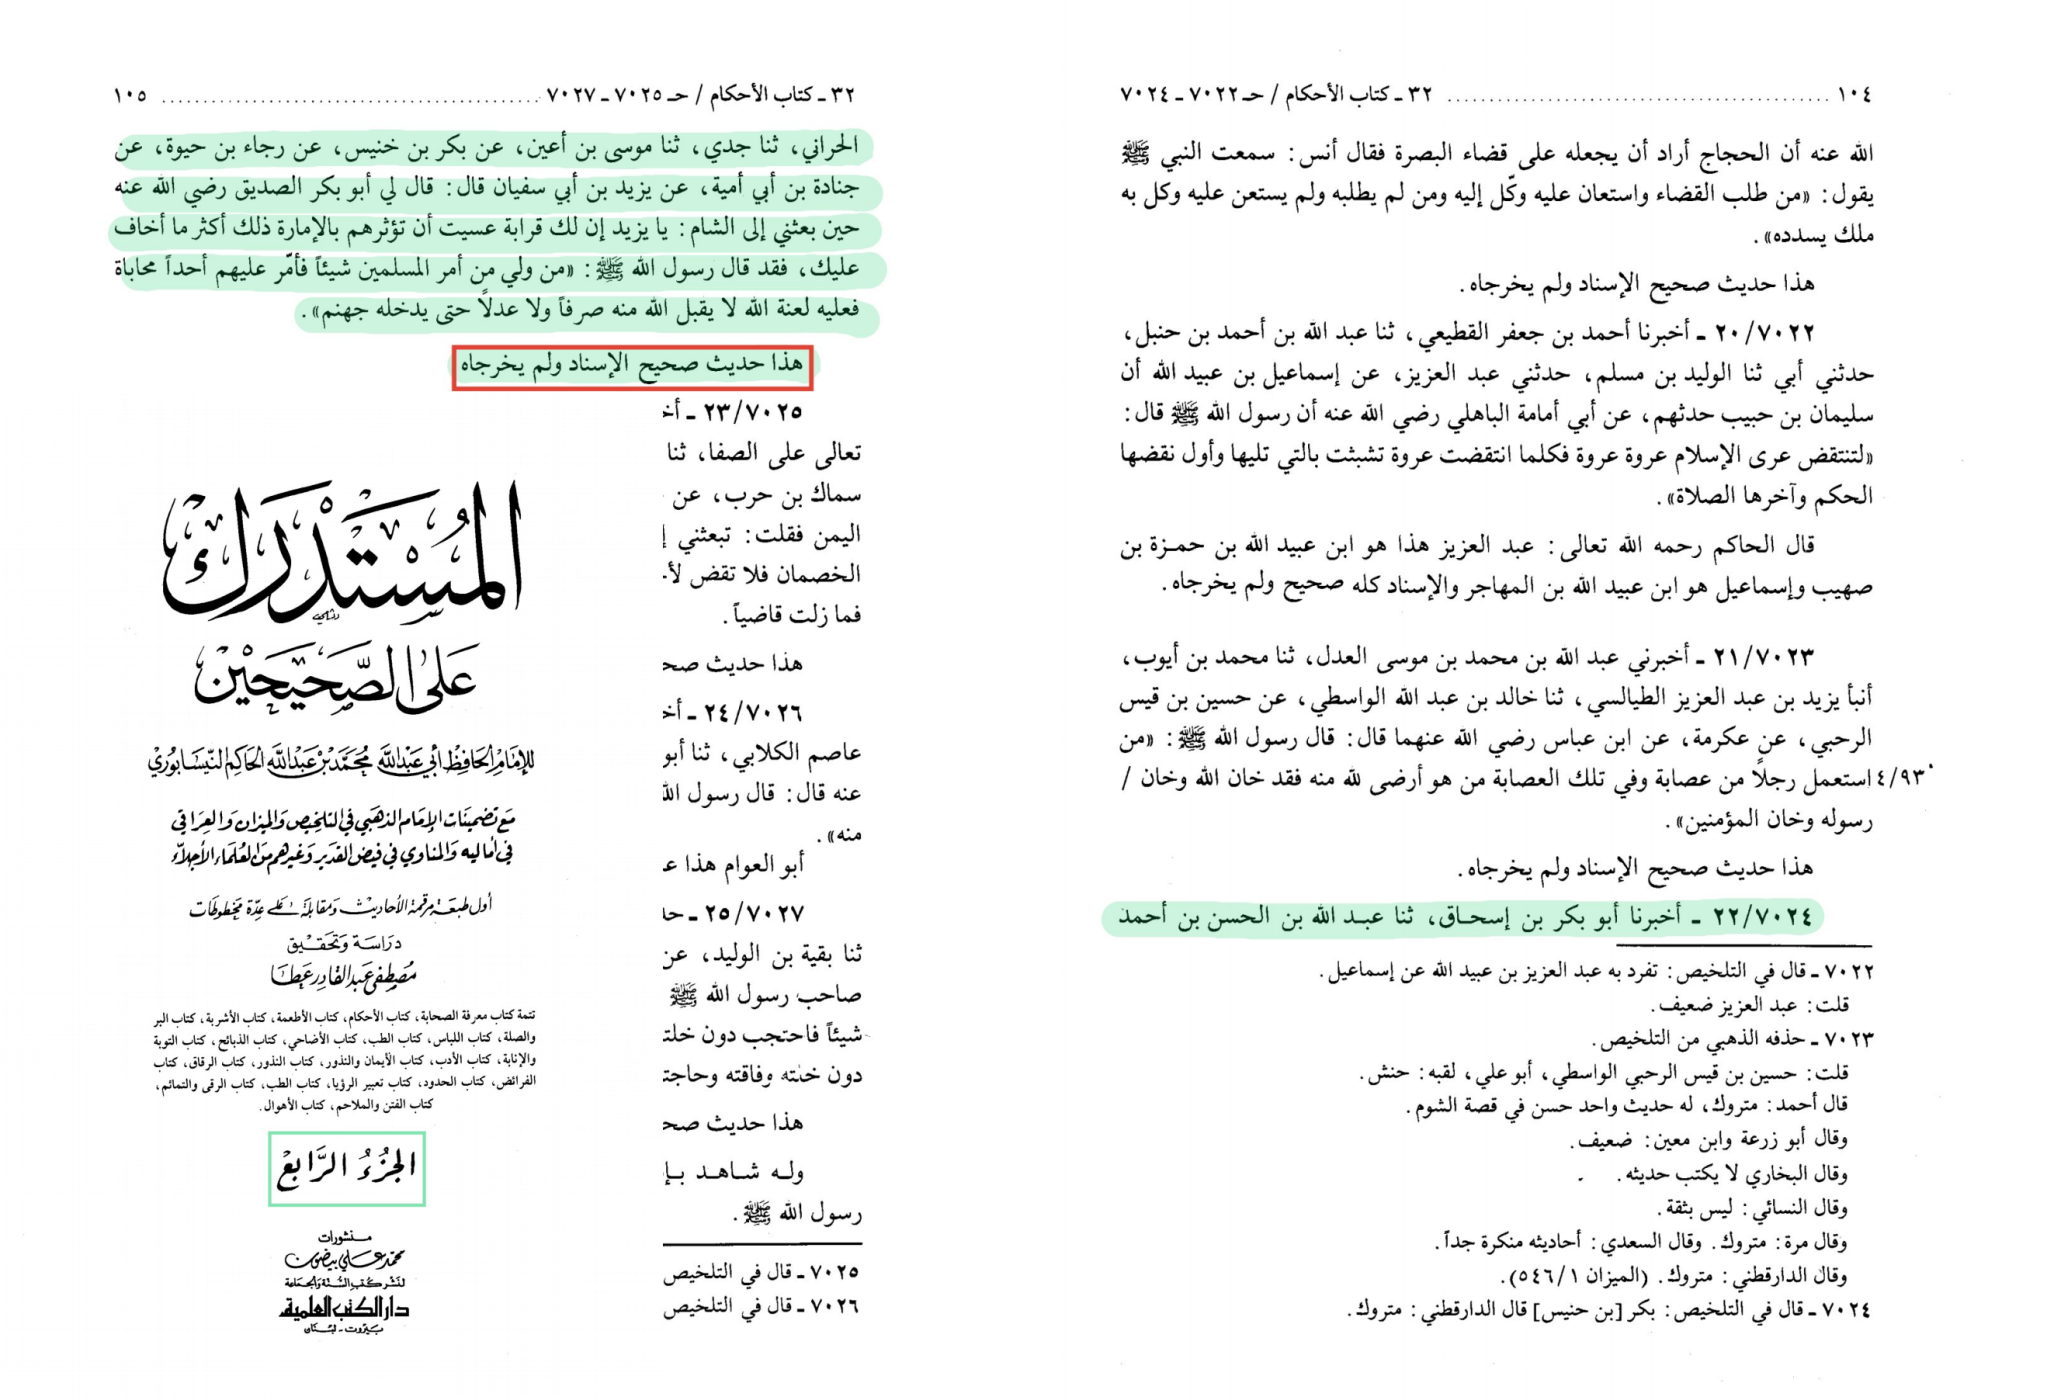 ١٠٤ ........ ٣٢ ـ كتاب الأحكام / حـ ٧٠٢٢ ـ ٧٠٢٤
الله عنه أن الحجاج أراد أن يجعله على قضاء البصرة فقال أنس: سمعت النبي ﷺ
يقول: «من طلب القضاء واستعان عليه وكّل إليه ومن لم يطلبه ولم يستعن عليه وكل به
ملك يسدده».
هذا حديث صحيح الإسناد ولم يخرجاه.
٢٠/٧٠٢٢ ـ أخبرنا أحمد بن جعفر القطيعي، ثنا عبد الله بن أحمد بن حنبل،
حدثني أبي ثنا الوليد بن مسلم، حدثني عبد العزيز، عن إسماعيل بن عبيد الله أن
سليمان بن حبيب حدثهم، عن أبي أمامة الباهلي رضي الله عنه أن رسول الله ﷺ قال:
«لتنتقض عرى الإسلام عروة عروة فكلما انتقضت عروة تشبثت بالتي تليها وأول نقضها
الحكم وآخرها الصلاة».
قال الحاكم رحمه الله تعالى: عبد العزيز هذا هو ابن عبيد الله بن حمـزة بن
صهيب وإسماعيل هو ابن عبيد الله بن المهاجر والإسناد كله صحيح ولم يخرجاه.
٢١/٧٠٢٣ ـ أخبرني عبد الله بن محمد بن موسى العدل، ثنا محمد بن أيوب،
أنبأ يزيد بن عبد العزيز الطيالسي، ثنا خالد بن عبد الله الواسطي، عن حسين بن قيس
الرحبي، عن عكرمة، عن ابن عباس رضي الله عنهما قال: قال رسول الله ﷺ: «من
٤/٩٣ استعمل رجلاً من عصابة وفي تلك العصابة من هو أرضى لله منه فقد خان الله وخان /
رسوله وخان المؤمنين».
هذا حديث صحيح الإسناد ولم يخرجاه.
٢٢/٧٠٢٤ ـ أخبرنا أبو بكر بن إسحـاق، ثنا عبـد الله بن الحسن بن أحمد
٧٠٢٢ ـ قال في التلخيص: تفرد به عبد العزيز بن عبيد الله عن إسماعيل.
قلت: عبد العزيز ضعيف.
٧٠٢٣ ـ حذفه الذهبي من التلخيص.
قلت: حسين بن قيس الرحبي الواسطي، أبو علي، لقبه: حنش.
قال أحمد: متروك، له حديث واحد حسن في قصة الشوم.
وقال أبو زرعة وابن معين: ضعيف.
وقال البخاري لا يكتب حديثه.
وقال النسائي: ليس بثقة.
وقال مرة: متروك. وقال السعدي: أحاديثه منكرة جداً.
وقال الدارقطني: متروك. (الميزان ٥٤٦/١).
٧٠٢٤ ـ قال في التلخيص: بكر [بن حنيس] قال الدارقطني: متروك.
٣٢ ـ كتاب الأحكام / حـ ٧٠٢٥ ـ ٧٠٢٧ ........ ١٠٥
الحراني، ثنا جدي، ثنا موسى بن أعين، عن بكر بن خنيس، عن رجاء بن حيوة، عن
جنادة بن أبي أمية، عن يزيد بن أبي سفيان قال: قال لي أبو بكر الصديق رضي الله عنه
حين بعثني إلى الشام: يا يزيد إن لك قرابة عسيت أن تؤثرهم بالإمارة ذلك أكثر ما أخاف
عليك، فقد قال رسول الله ﷺ: «من ولي من أمر المسلمين شيئاً فأمّر عليهم أحداً محاباة
فعليه لعنة الله لا يقبل الله منه صرفاً ولا عدلاً حتى يدخله جهنم».
هذا حديث صحيح الإسناد ولم يخرجاه
٢٣/٧٠٢٥ ـ أخ
تعالى على الصفا، ثنا
سماك بن حرب، عن
اليمن فقلت: تبعثني إ
الخصمان فلا تقض لأ
فما زلت قاضياً.
هذا حديث صح
٢٤/٧٠٢٦ ـ أخ
عاصم الكلابي، ثنا أبو
عنه قال: قال رسول الله
منه».
أبو العوام هذا ع
٢٥/٧٠٢٧ ـ حد
ثنا بقية بن الوليد، عن
صاحب رسول الله ﷺ
شيئاً فاحتجب دون خلت
دون خلته وفاقته وحاجت
هذا حديث صح
ولـه شـاهـد بـإ
رسول الله ﷺ.
٧٠٢٥ ـ قال في التلخيص
٧٠٢٦ ـ قال في التلخيص
المُسْتَدْرَك
عَلَى الصَّحِيحَيْن
للإمام الحافظ أبي عبد الله محمد بن عبد الله الحاكم النيسابوري
مع تضمينات الإمام الذهبي في التلخيص والميزان والعراقي
في أماليه والمناوي في فيض القدير وغيرهم من العلماء الأجلاء
أول طبعة مرقمة الأحاديث ومقابلة على عدة مخطوطات
دراسة وتحقيق
مصطفى عبد القادر عطا
تتمة كتاب معرفة الصحابة، كتاب الأحكام، كتاب الأطعمة، كتاب الأشربة، كتاب البر
والصلة، كتاب اللباس، كتاب الطب، كتاب الأضاحي، كتاب الذبائح، كتاب التوبة
والإنابة، كتاب الأدب، كتاب الأيمان والنذور، كتاب النذور، كتاب الرقاق، كتاب
الفرائض، كتاب الحدود، كتاب تعبير الرؤيا، كتاب الطب، كتاب الرقى والتمائم،
كتاب الفتن والملاحم، كتاب الأهوال.
الجُزْءُ الرَّابِعْ
منشورات
محمد علي بيضون
لنشر كتب السنة والجماعة
دار الكتب العلمية
بيروت - لبنان